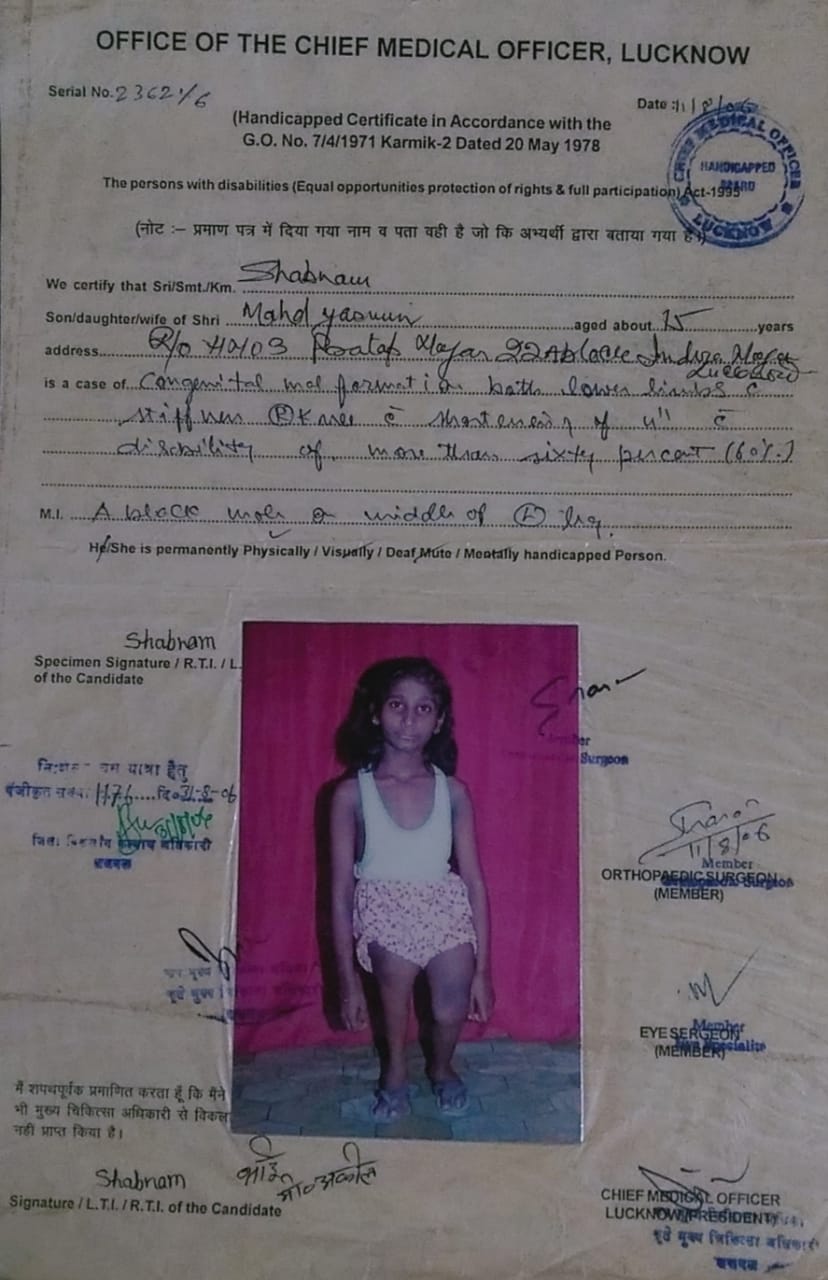 OFFICE OF THE CHIEF MEDICAL OFFICER, LUCKNOW
Serial No. 23621/6
Date : 11/8/06
(Handicapped Certificate in Accordance with the
G.O. No. 7/4/1971 Karmik-2 Dated 20 May 1978
CHIEF MEDICAL OFFICER
HANDICAPPED
BOARD
LUCKNOW
The persons with disabilities (Equal opportunities protection of rights & full participation) Act-1995
(नोट :– प्रमाण पत्र में दिया गया नाम व पता वही है जो कि अभ्यर्थी द्वारा बताया गया है।)
We certify that Sri/Smt./Km. Shabnam
Son/daughter/wife of Shri Mohd Yasmin aged about 15 years
address R/o Nagar Block Indira Nagar
Lucknow
is a case of Congenital malformation both lower limbs c̄
stiffness (R) Knee c̄ shortening of 4" c̄
disability of more than sixty percent (60%)
M.I. A black mole on middle of leg.
He/She is permanently Physically / Visually / Deaf Mute / Mentally handicapped Person.
Shabnam
Specimen Signature / R.T.I. / L.
of the Candidate
Member
Surgeon
यात्रा हेतु
1176 दि० 31-8-06
31/8/06
11/8/06
Member
ORTHOPAEDIC SURGEON
Orthopaedic Surgeon
(MEMBER)
Member
EYE SERGEON
(MEMBER)
मैं शपथपूर्वक प्रमाणित करता हूँ कि मैंने
भी मुख्य चिकित्सा अधिकारी से विकल
नहीं प्राप्त किया है।
Shabnam
Signature / L.T.I. / R.T.I. of the Candidate
CHIEF MEDICAL OFFICER
LUCKNOW (PRESIDENT)
मुख्य चिकित्सा अधिकारी
लखनऊ